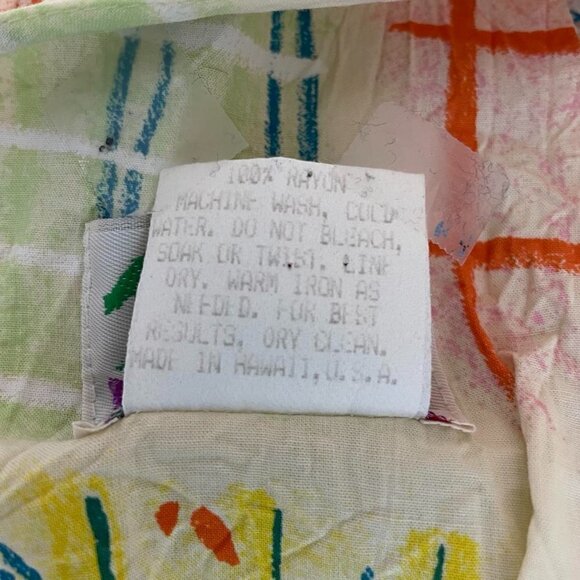 100% RAYON
MACHINE WASH, COLD
WATER. DO NOT BLEACH,
SOAK OR TWIST. LINE
DRY. WARM IRON AS
NEEDED. FOR BEST
RESULTS, DRY CLEAN.
MADE IN HAWAII,U.S.A.